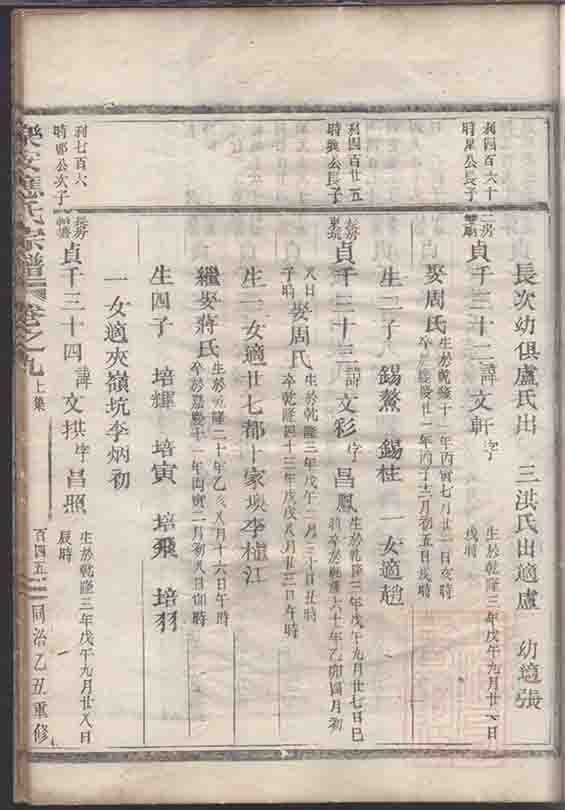 長次幼俱盧氏出 三洪氏出適盧 幼適張
利四百六十二
時
公長子
房
貞千三十二諱文軒字
生於乾隆三年戊午九月廿八日
戌時
娶周氏
生於乾隆十一年丙寅七月廿一日亥時
卒於嘉慶廿一年丙子十二月初五日戌時
生二子 錫 錫桂 一女適趙
利四百廿五
時興公長子
長房
貞千三十三諱文彩字昌鳳
生於乾隆三年戊午九月廿七日巳
時卒於乾隆六十年乙卯閏月初
八日
子時
娶周氏
生於乾隆三年戊午二月三十日丑時
卒乾隆四十三年戊戌八月廿三日午時
生一女適廿七都卜家坝李槽江
繼娶蔣氏
生於乾隆二十年乙亥八月十六日午時
卒於嘉慶十一年丙寅二月初八日卯時
生四子 培輝 培寅 培飛 培羽
一女適夾嶺坑李炳初
利七百六
時
公次子
長房
貞千三十四諱文拱字昌照
生於乾隆三年戊午九月廿八日
辰時
樂安應氏宗譜 卷之九 上集 百四五 同治乙丑重修